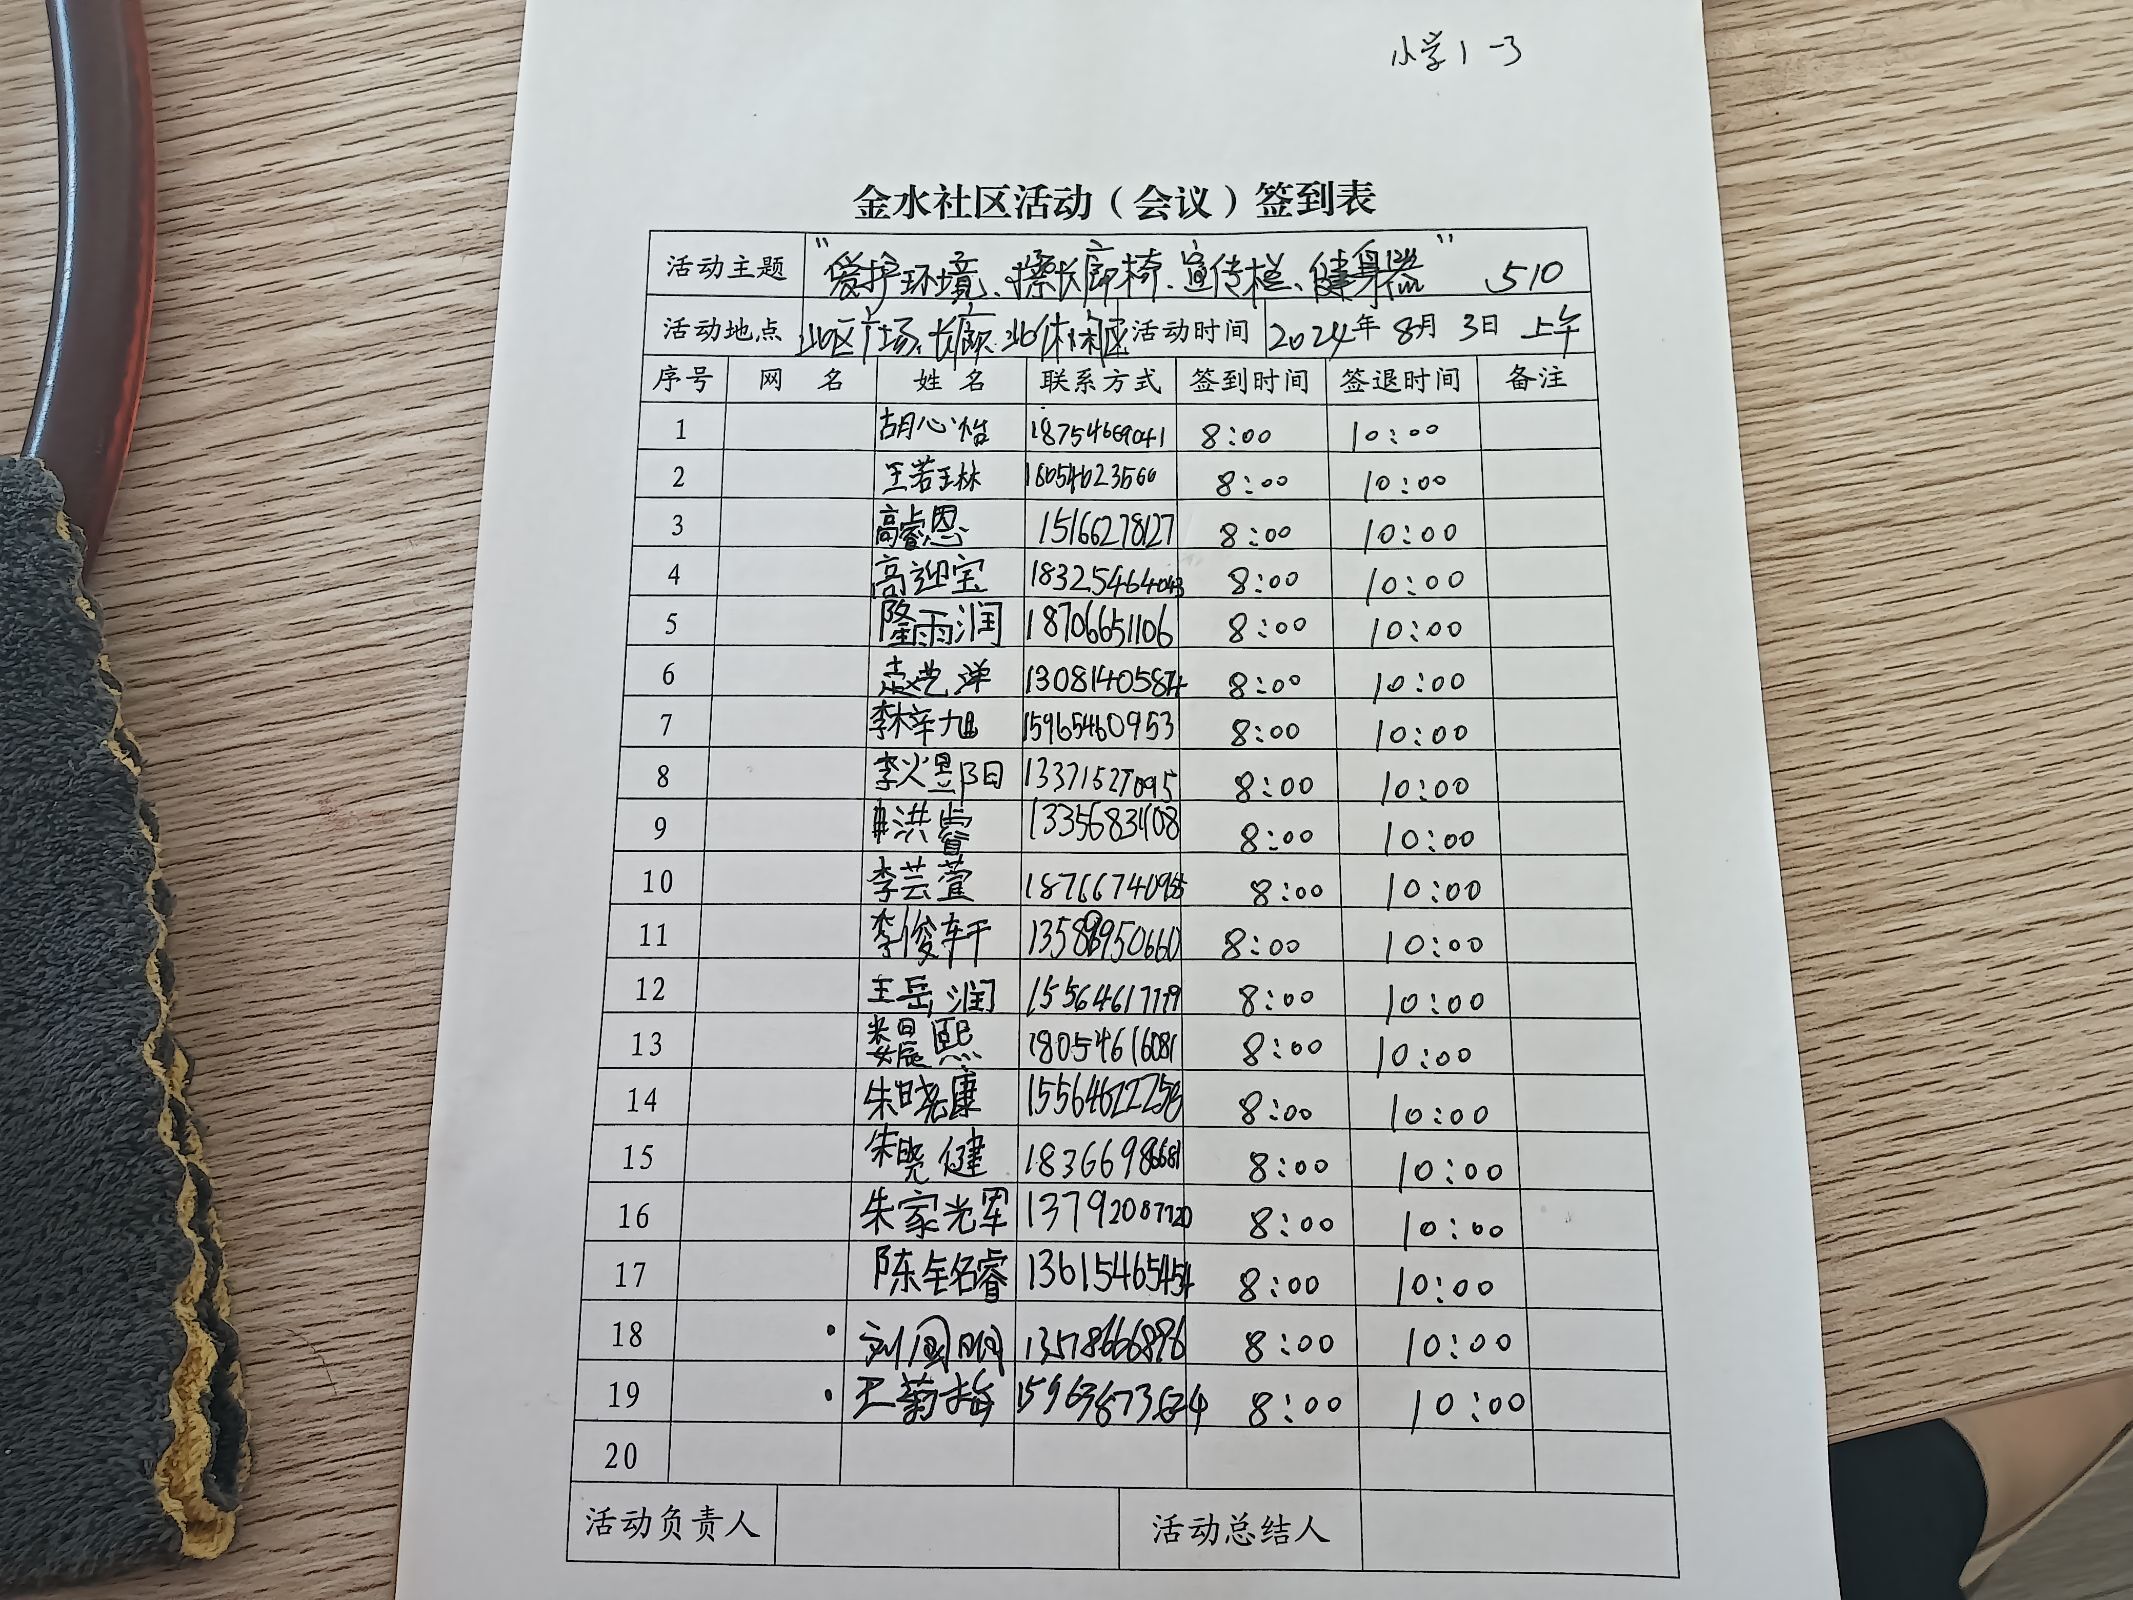 小学1-3
金水社区活动（会议）签到表
活动主题 “爱护环境、擦长廊椅、宣传栏、健身器” 510
活动地点 北区广场、长廊、北休闲区 活动时间 2024年8月3日 上午
序号 网名 姓名 联系方式 签到时间 签退时间 备注
1 胡心怡 18754669041 8:00 10:00
2 王若琳 18054623560 8:00 10:00
3 高睿恩 15166278127 8:00 10:00
4 高迎宝 18325464043 8:00 10:00
5 隆雨润 18706651106 8:00 10:00
6 8:00 10:00
7 李梓旭 15965460953 8:00 10:00
8 李煜阳 8:00 10:00
9 洪睿 8:00 10:00
10 李芸萱 8:00 10:00
11 李俊轩 8:00 10:00
12 王岳润 8:00 10:00
13 娄晨熙 18054616081 8:00 10:00
14 朱晓康 8:00 10:00
15 朱晓健 8:00 10:00
16 朱家 8:00 10:00
17 陈 睿 13615465454 8:00 10:00
18 刘国明 8:00 10:00
19 王菊梅 8:00 10:00
20
活动负责人 活动总结人